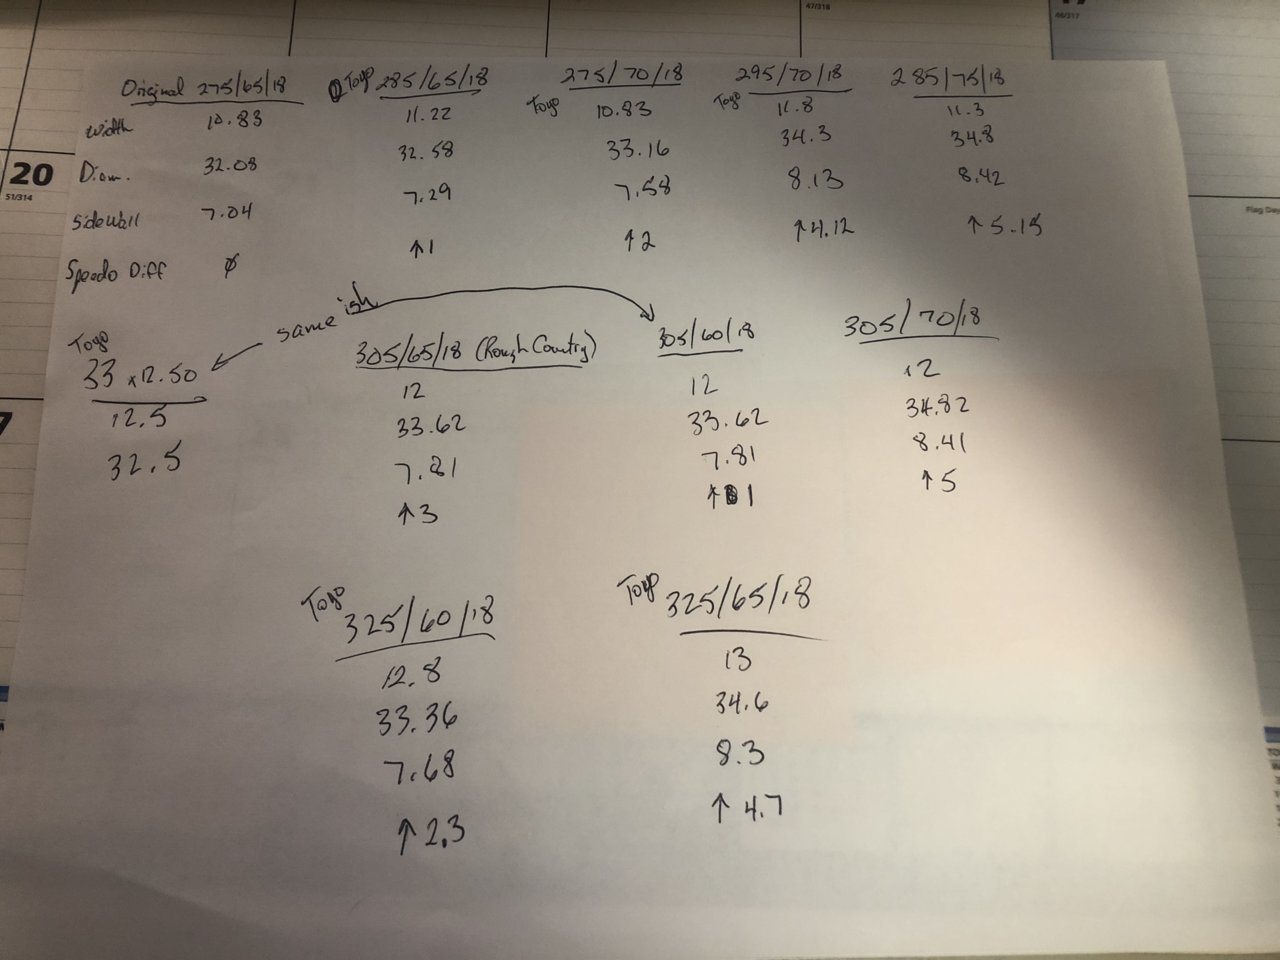 47/318
46/317
Original 275/65/18
Toyo 285/65/18
275/70/18
295/70/18
285/75/18
Toyo
Toyo
width 10.83 11.22 10.83 11.8 11.3
Diam. 32.08 32.58 33.16 34.3 34.8
Sidewall 7.04 7.29 7.58 8.13 8.42
Speedo Diff ∅ ↑1 ↑2 ↑4.12 ↑5.15
20
51/314
Flag Day
7
same ish
Toyo
33 x12.50
12.5
32.5
305/65/18 (Rough Country)
12
33.62
7.81
↑3
305/60/18
12
33.62
7.81
↑1
305/70/18
12
34.82
8.41
↑5
Toyo
325/60/18
12.8
33.36
7.68
↑2.3
Toyo
325/65/18
13
34.6
8.3
↑4.7